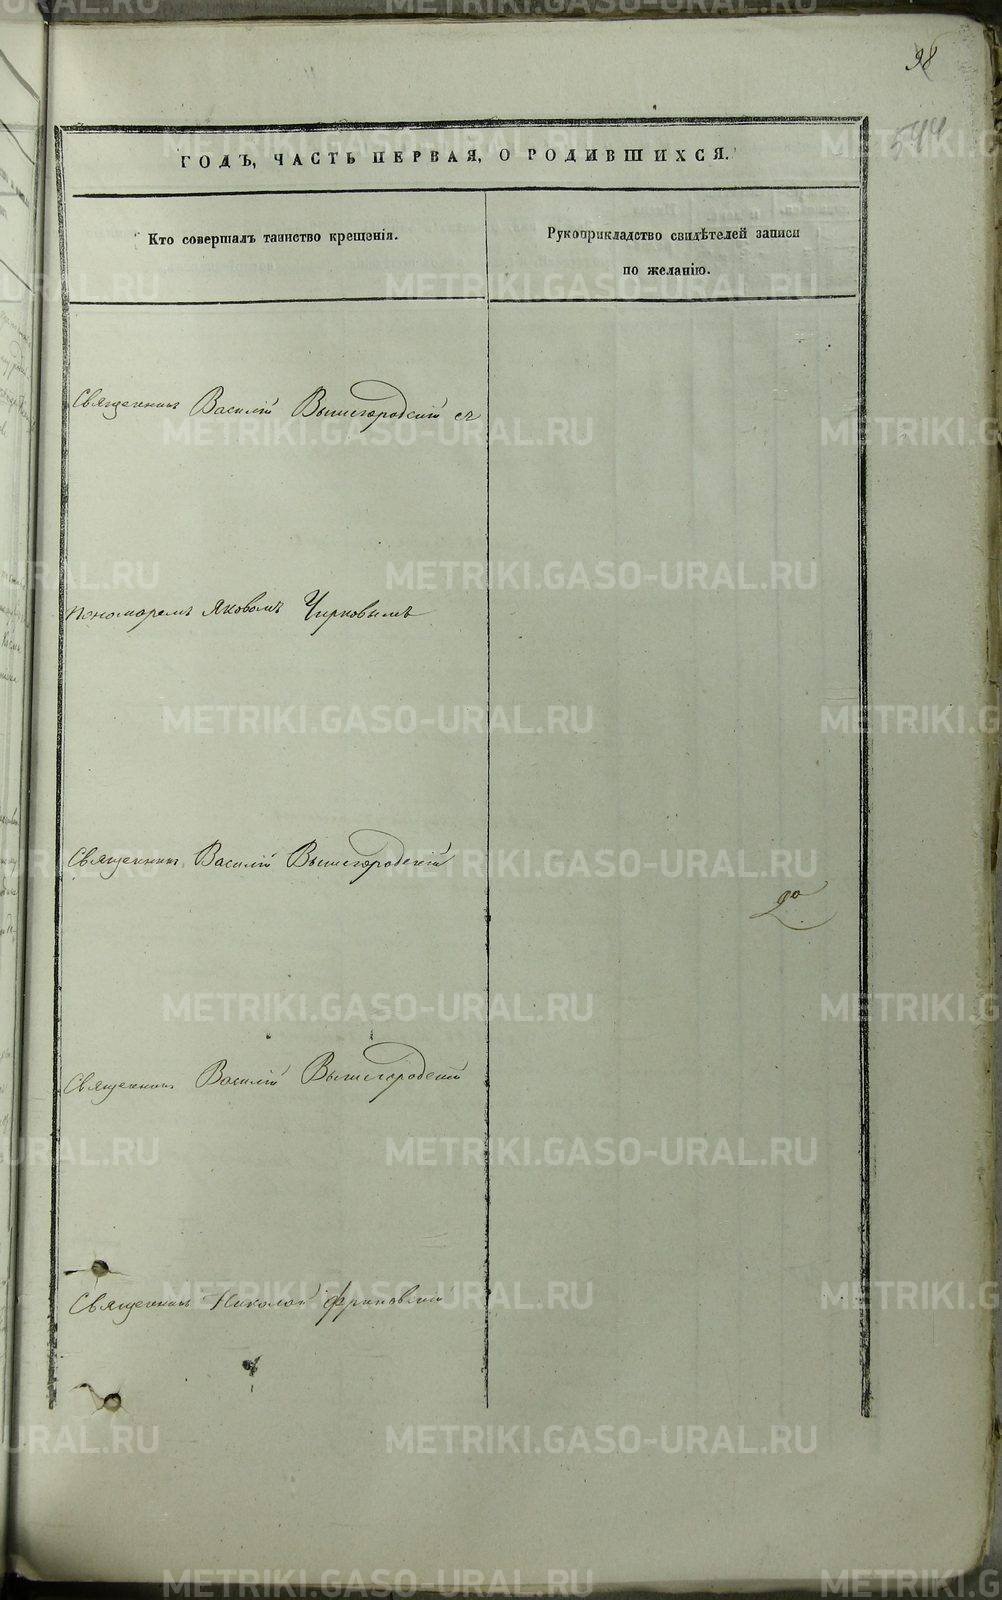 98
544
ГОДЪ, ЧАСТЬ ПЕРВАЯ, О РОДИВШИХСЯ.
Кто совершалъ таинство крещенія.
Рукоприкладство свидѣтелей записи
по желанію.
Священникъ Василій Вышегородскій съ
Пономаремъ Яковомъ Чирковымъ
Священникъ Василій Вышегородскій
Священникъ Василій Вышегородскій
Священникъ Николай
METRIKI.GASO-URAL.RU